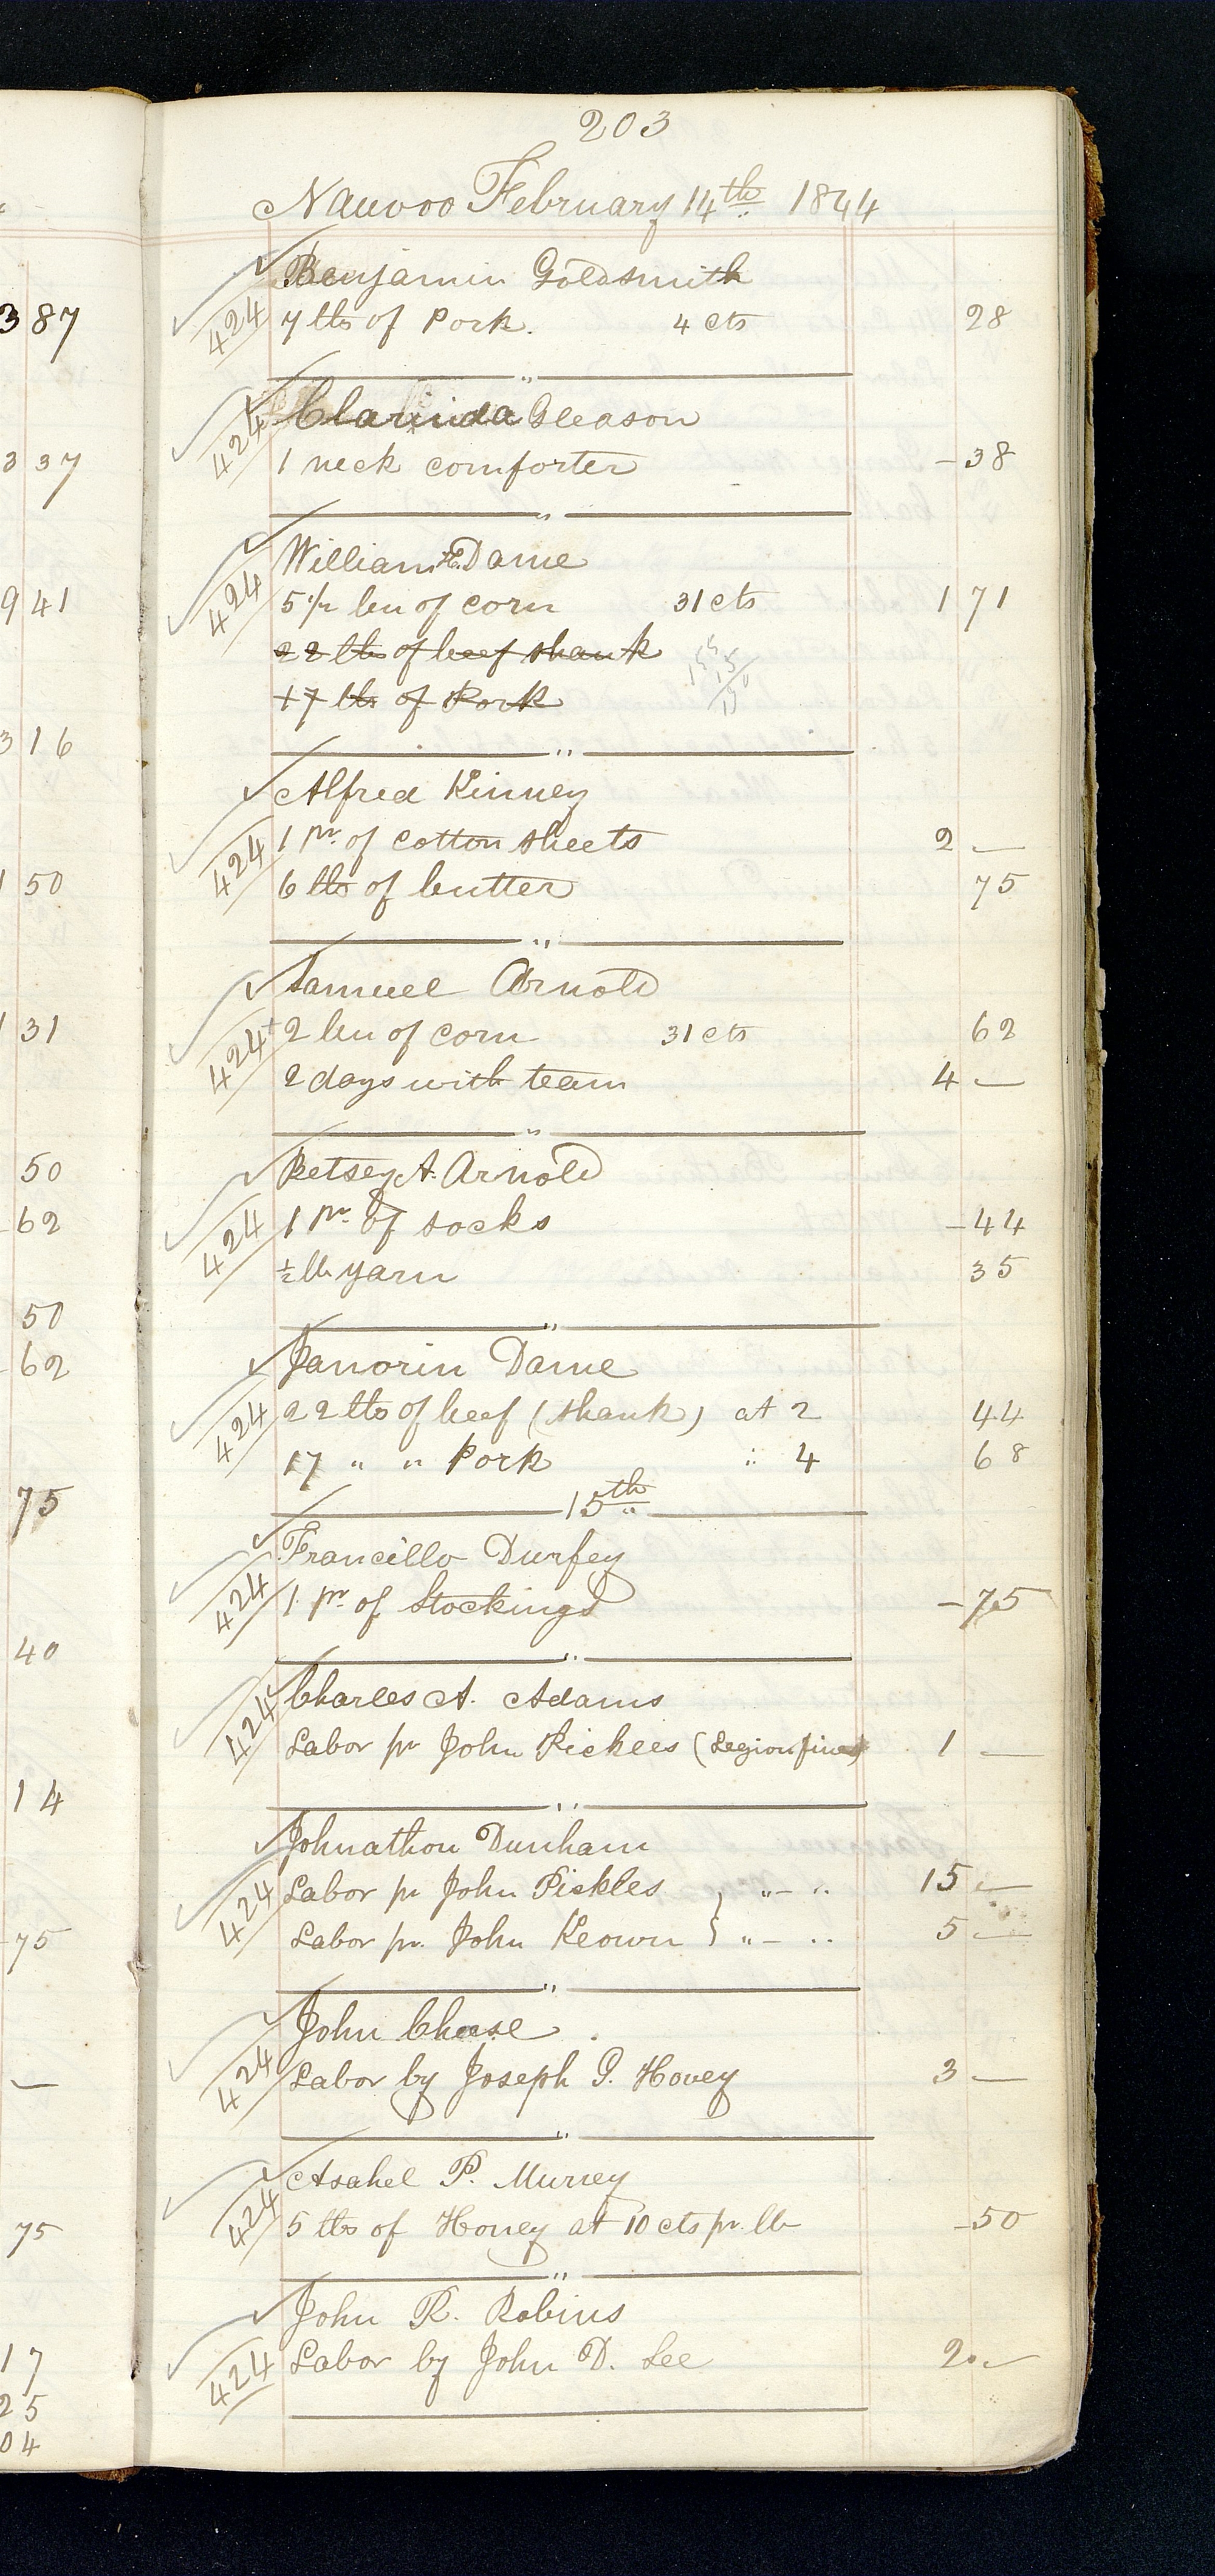 203
Nauvoo February 14th 1844
Benjamin Goldsmith
424 7 lbs of Pork. 4 cts 28
Clarinda Gleason
424 1 neck comforter - 38
William H. Dame
424 5 1/2 bu of corn 31 cts 1 71
22 lbs of beef shank
17 lbs of Pork
Alfred Kinney
424 1 pr. of cotton sheets 2 —
6 lbs of butter 75
Samuel Arnold
424 + 2 bu of corn 31 cts 62
2 days with team 4 —
Betsey A. Arnold
424 1 pr. of socks - 44
1/2 lb yarn 35
Janvrin Dame
424 22 lbs of beef (shank) at 2 44
17 " " Pork " 4 68
15th
Francillo Durfey
424 1 pr. of Stockings - 75
Charles A. Adams
424 Labor pr John Pickles (Legion fines) 1 —
Johnathon Dunham
424 Labor pr John Pickles } " - " 15 —
Labor pr. John Keown } " - " 5 —
John Chase
424 Labor by Joseph G. Hovey 3 —
Asahel P. Murrey
424 5 lbs of Honey at 10 cts pr. lb - 50
John R. Robins
424 Labor by John D. Lee 2 —
3 87
3 37
9 41
3 16
1 50
1 31
50
- 62
50
- 62
75
40
14
- 75
—
75
17
25
04